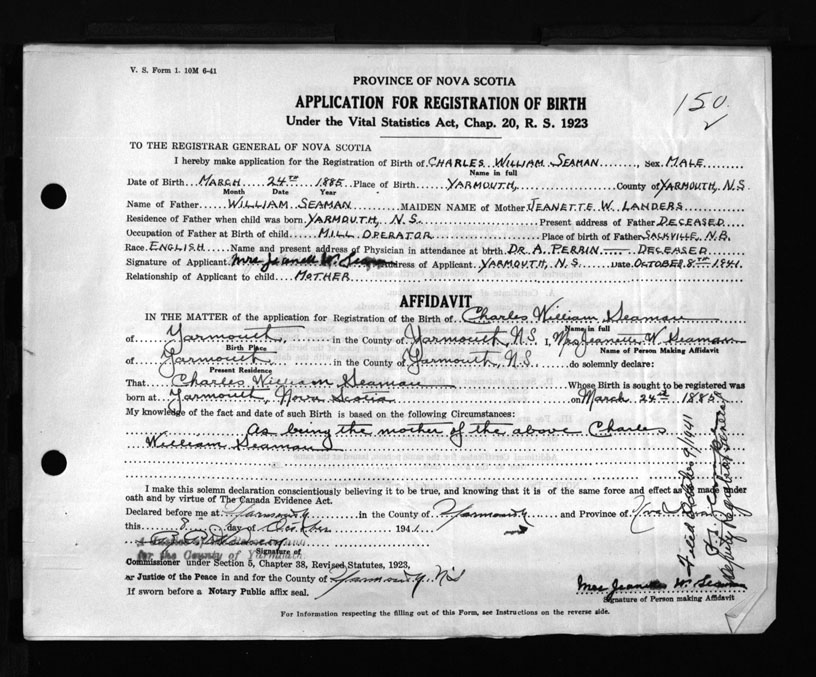 V. S. Form 1. 10M 6-41
PROVINCE OF NOVA SCOTIA
APPLICATION FOR REGISTRATION OF BIRTH
150
Under the Vital Statistics Act, Chap. 20, R. S. 1923
TO THE REGISTRAR GENERAL OF NOVA SCOTIA
I hereby make application for the Registration of Birth of CHARLES WILLIAM SEAMAN, Sex MALE
Name in full
Date of Birth MARCH 24TH 1885 Place of Birth YARMOUTH, County of YARMOUTH, N.S.
Month Date Year
Name of Father WILLIAM SEAMAN MAIDEN NAME of Mother JEANETTE W. LANDERS
Residence of Father when child was born YARMOUTH, N.S. Present address of Father DECEASED
Occupation of Father at Birth of child MILL OPERATOR Place of birth of Father SACKVILLE, N.B.
Race ENGLISH Name and present address of Physician in attendance at birth DR A. PERRIN — DECEASED
Signature of Applicant Mrs Jeanett W. Seaman Address of Applicant YARMOUTH, N.S. Date OCTOBER 8TH 1941.
Relationship of Applicant to child MOTHER
AFFIDAVIT
IN THE MATTER of the application for Registration of the Birth of Charles William Seaman
Name in full
of Yarmouth, in the County of Yarmouth, N.S. I, Mrs Jeanette W. Seaman
Birth Place Name of Person Making Affidavit
of Yarmouth in the County of Yarmouth, N.S. do solemnly declare:
Present Residence
That Charles William Seaman Whose Birth is sought to be registered was
born at Yarmouth, Nova Scotia on March 24th 1885
My knowledge of the fact and date of such Birth is based on the following Circumstances:
As being the mother of the above Charles
William Seaman
I make this solemn declaration conscientiously believing it to be true, and knowing that it is of the same force and effect as if made under
oath and by virtue of The Canada Evidence Act.
Declared before me at Yarmouth in the County of Yarmouth and Province of Nova
this 8 day of October 1941
for the County of Yarmouth
Signature of
Commissioner under Section 5, Chapter 38, Revised Statutes, 1923,
or Justice of the Peace in and for the County of Yarmouth, N.S
If sworn before a Notary Public affix seal.
Mrs Jeanett W. Seaman
Signature of Person making Affidavit
For Information respecting the filling out of this Form, see Instructions on the reverse side.
Filed October 9/1941
Deputy Registrar General